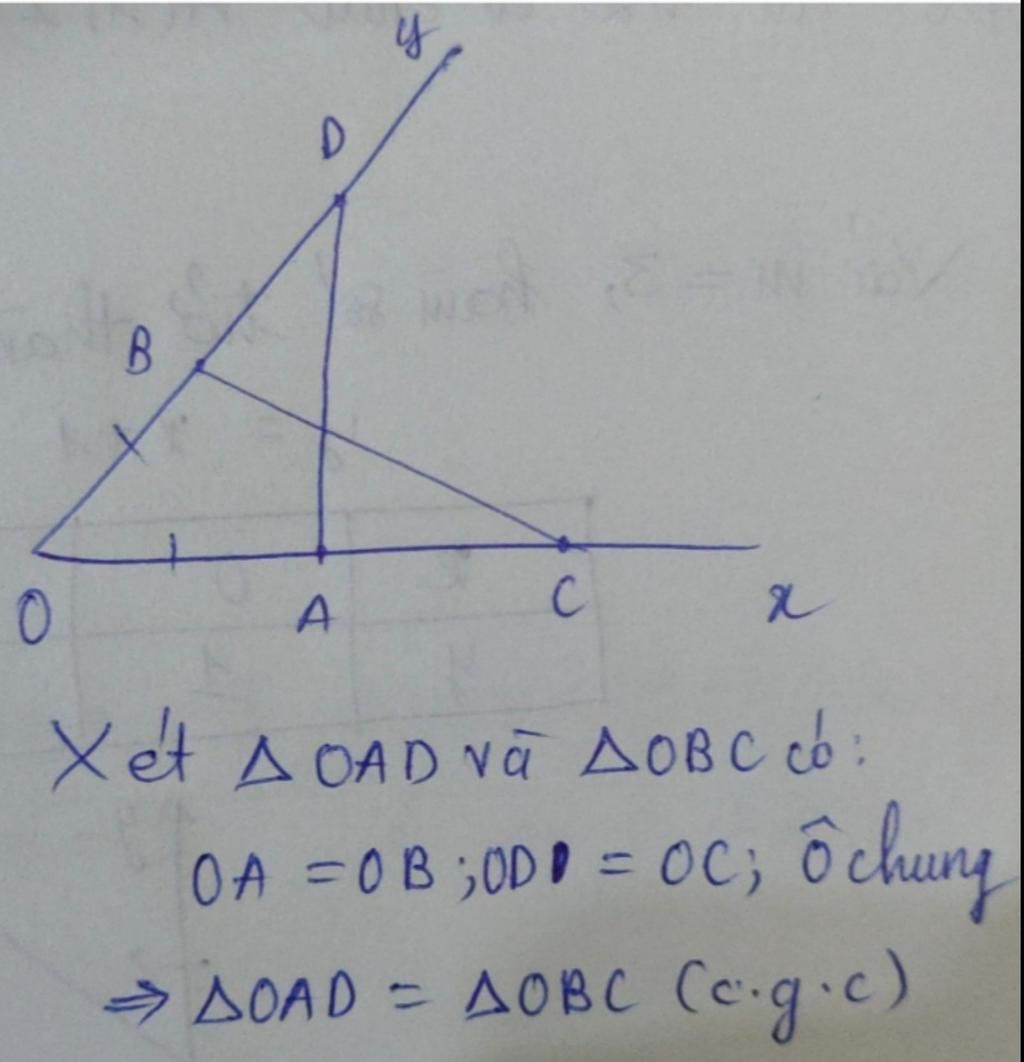 y
D
B
O
A
C
x
Xét ΔOAD và ΔOBC có:
OA = OB; OD = OC; Ô chung
⇒ ΔOAD = ΔOBC (c.g.c)